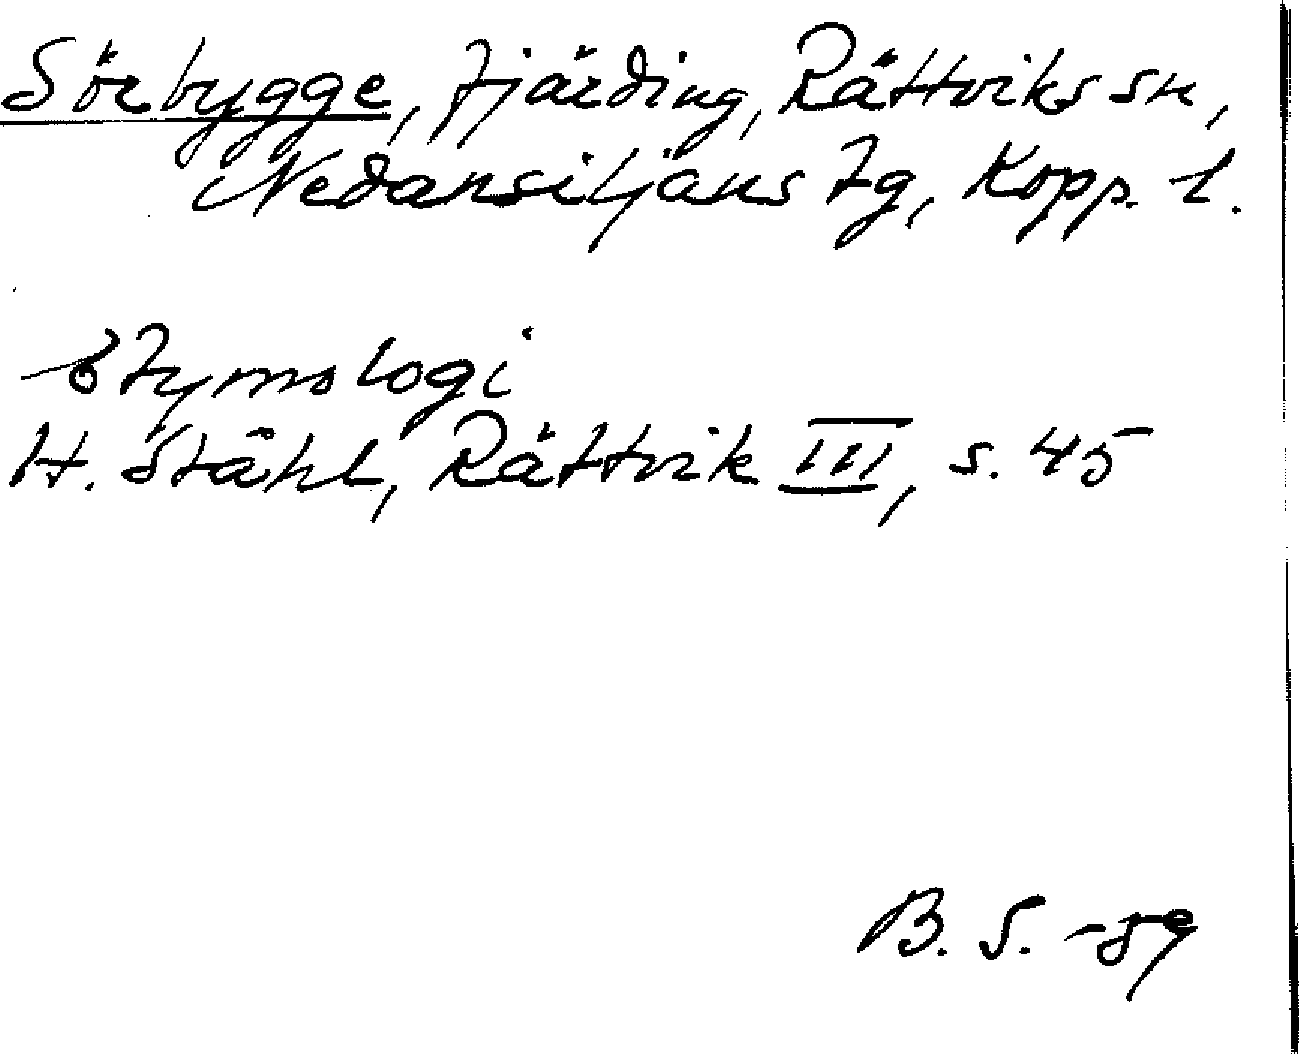 Sörbygge, fjärding, Rättviks sn,
Nedansiljans tg, Kopp. l.
Etymologi
H. Ståhl, Rättvik III, s. 45
B. S. -89